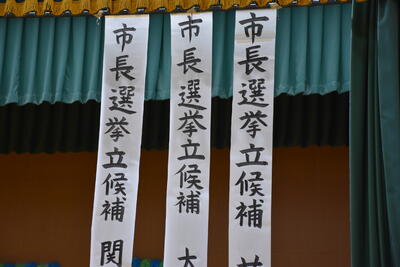 市長選挙立候補
市長選挙立候補
市長選挙立候補 関